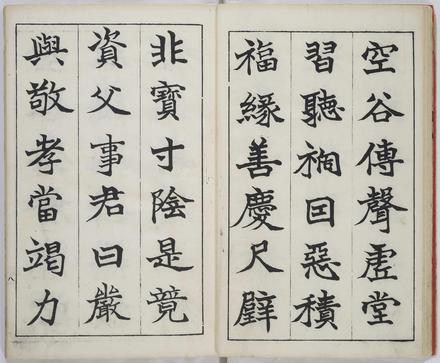 空谷傳聲虛堂
習聽禍囙惡積
福緣善慶尺璧
非寶寸陰是競
資父事君曰嚴
與敬孝當竭力
八